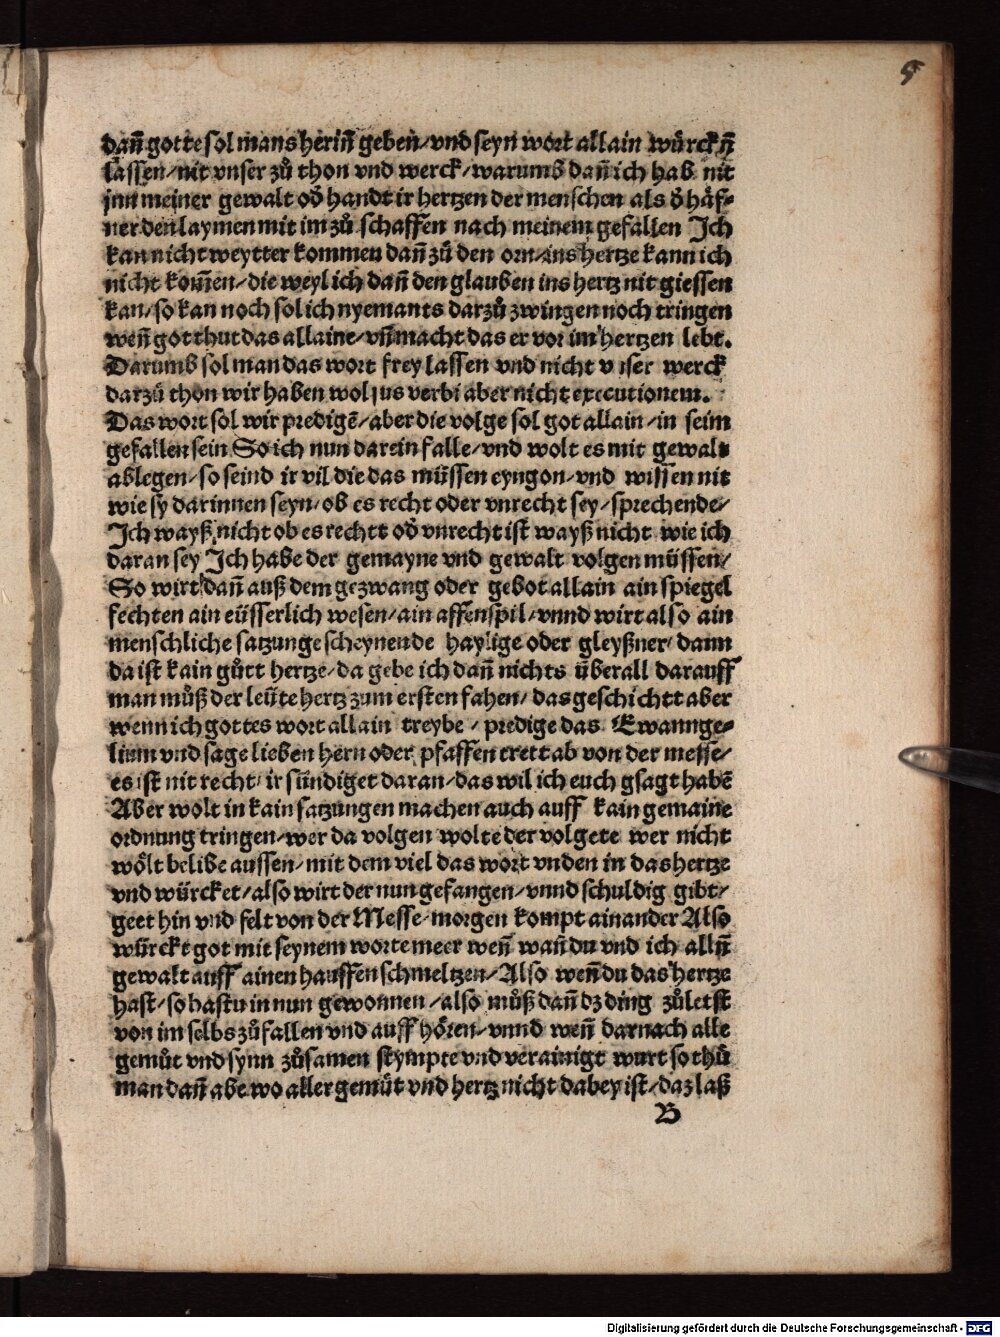 5
dañ gotte sol mans herin̄ geben/vnd seyn wort allain würckn̄
lassen/nit vnser zů thon vnd werck/warumb dañ ich hab nit
jnn meiner gewalt oď handt ir hertzen der menschen als ď häf⸗
ner den laymen mit im zů schaffen nach meinem gefallen Ich
kan nicht weytter kommen dañ zů den orn/ins hertze kann ich
nicht kom̄en/die weyl ich dañ den glauben ins hertz nit giessen
kan/so kan noch sol ich nyemants darzů zwingen noch tringen
weñ got thut das allaine/vñ macht das er vor im hertzen lebt.
Darumb sol man das wort frey lassen vnd nicht vnser werck
darzů thon wir haben wol jus verbi aber nicht executionem.
Das wort sol wir predigē/aber die volge sol got allain/in seim
gefallen sein So ich nun darein falle/vnd wolt es mit gewalt
ablegen/so seind ir vil die das müssen eyngon/vnd wissen nit
wie sy darinnen seyn/ob es recht oder vnrecht sey/sprechende/
Ich wayß nicht ob es rechtt oď vnrecht ist wayß nicht wie ich
daran sey Ich habe der gemayne vnd gewalt volgen müssen/
So wirt dañ auß dem gezwang oder gebot allain ain spiegel
fechten ain eüsserlich wesen/ain affenspil/vnnd wirt also ain
menschliche satzunge scheynende haylige oder gleyßner/dann
da ist kain gůtt hertze/da gebe ich dañ nichts überall darauff
man můß der leüte hertz zum ersten fahen/das geschichtt aber
wenn ich gottes wort allain treybe/predige das Ewannge⸗
lium vnd sage lieben hern oder pfaffen trett ab von der messe/
es ist nit recht/ir sündiget daran/das wil ich euch gsagt habē
Aber wolt in kain satzungen machen auch auff kain gemaine
ordnung tringen/wer da volgen wolte der volgete wer nicht
wölt belibe aussen/mit dem viel das wort vnden in das hertze
vnd würcket/also wirt der nun gefangen/vnnd schuldig gibt/
geet hin vnd felt von der Messe/morgen kompt ain ander Also
würckt got mit seynem worte meer weñ wañ du vnd ich alln̄
gewalt auff ainen hauffen schmeltzen/Also weñ du das hertze
hast/so hastu in nun gewonnen/also můß dañ dz ding zůletst
von im selbs zůfallen vnd auff hören/vnnd weñ darnach alle
gemůt vnd synn zůsamen stympte vnd verainigt wurt so thů
man dañ abe wo aller gemüt vnd hertz nicht dabey ist/daz laß
B
Digitalisierung gefördert durch die Deutsche Forschungsgemeinschaft - DFG